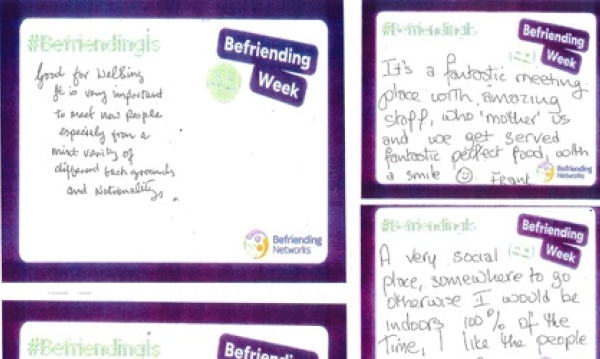 #Befriendingis
Befriending
Week
Good for Wellbing
It is very important
to meet new people
especially from a
mixt verity of
different back grounds
and Nationalitys.
Befriending
Networks
#Befriendingis
Befriending
Week
It's a fantastic meeting
place with, amazing
staff, who 'mother' us
and we get served
fantastic perfect food, with
a smile ☺ Frank
Befriending
Networks
#Befriendingis
Befriending
Week
A very social
place, somewhere to go
otherwise I would be
indoors 100% of the
time, I like the people
#Befriendingis
Befriending